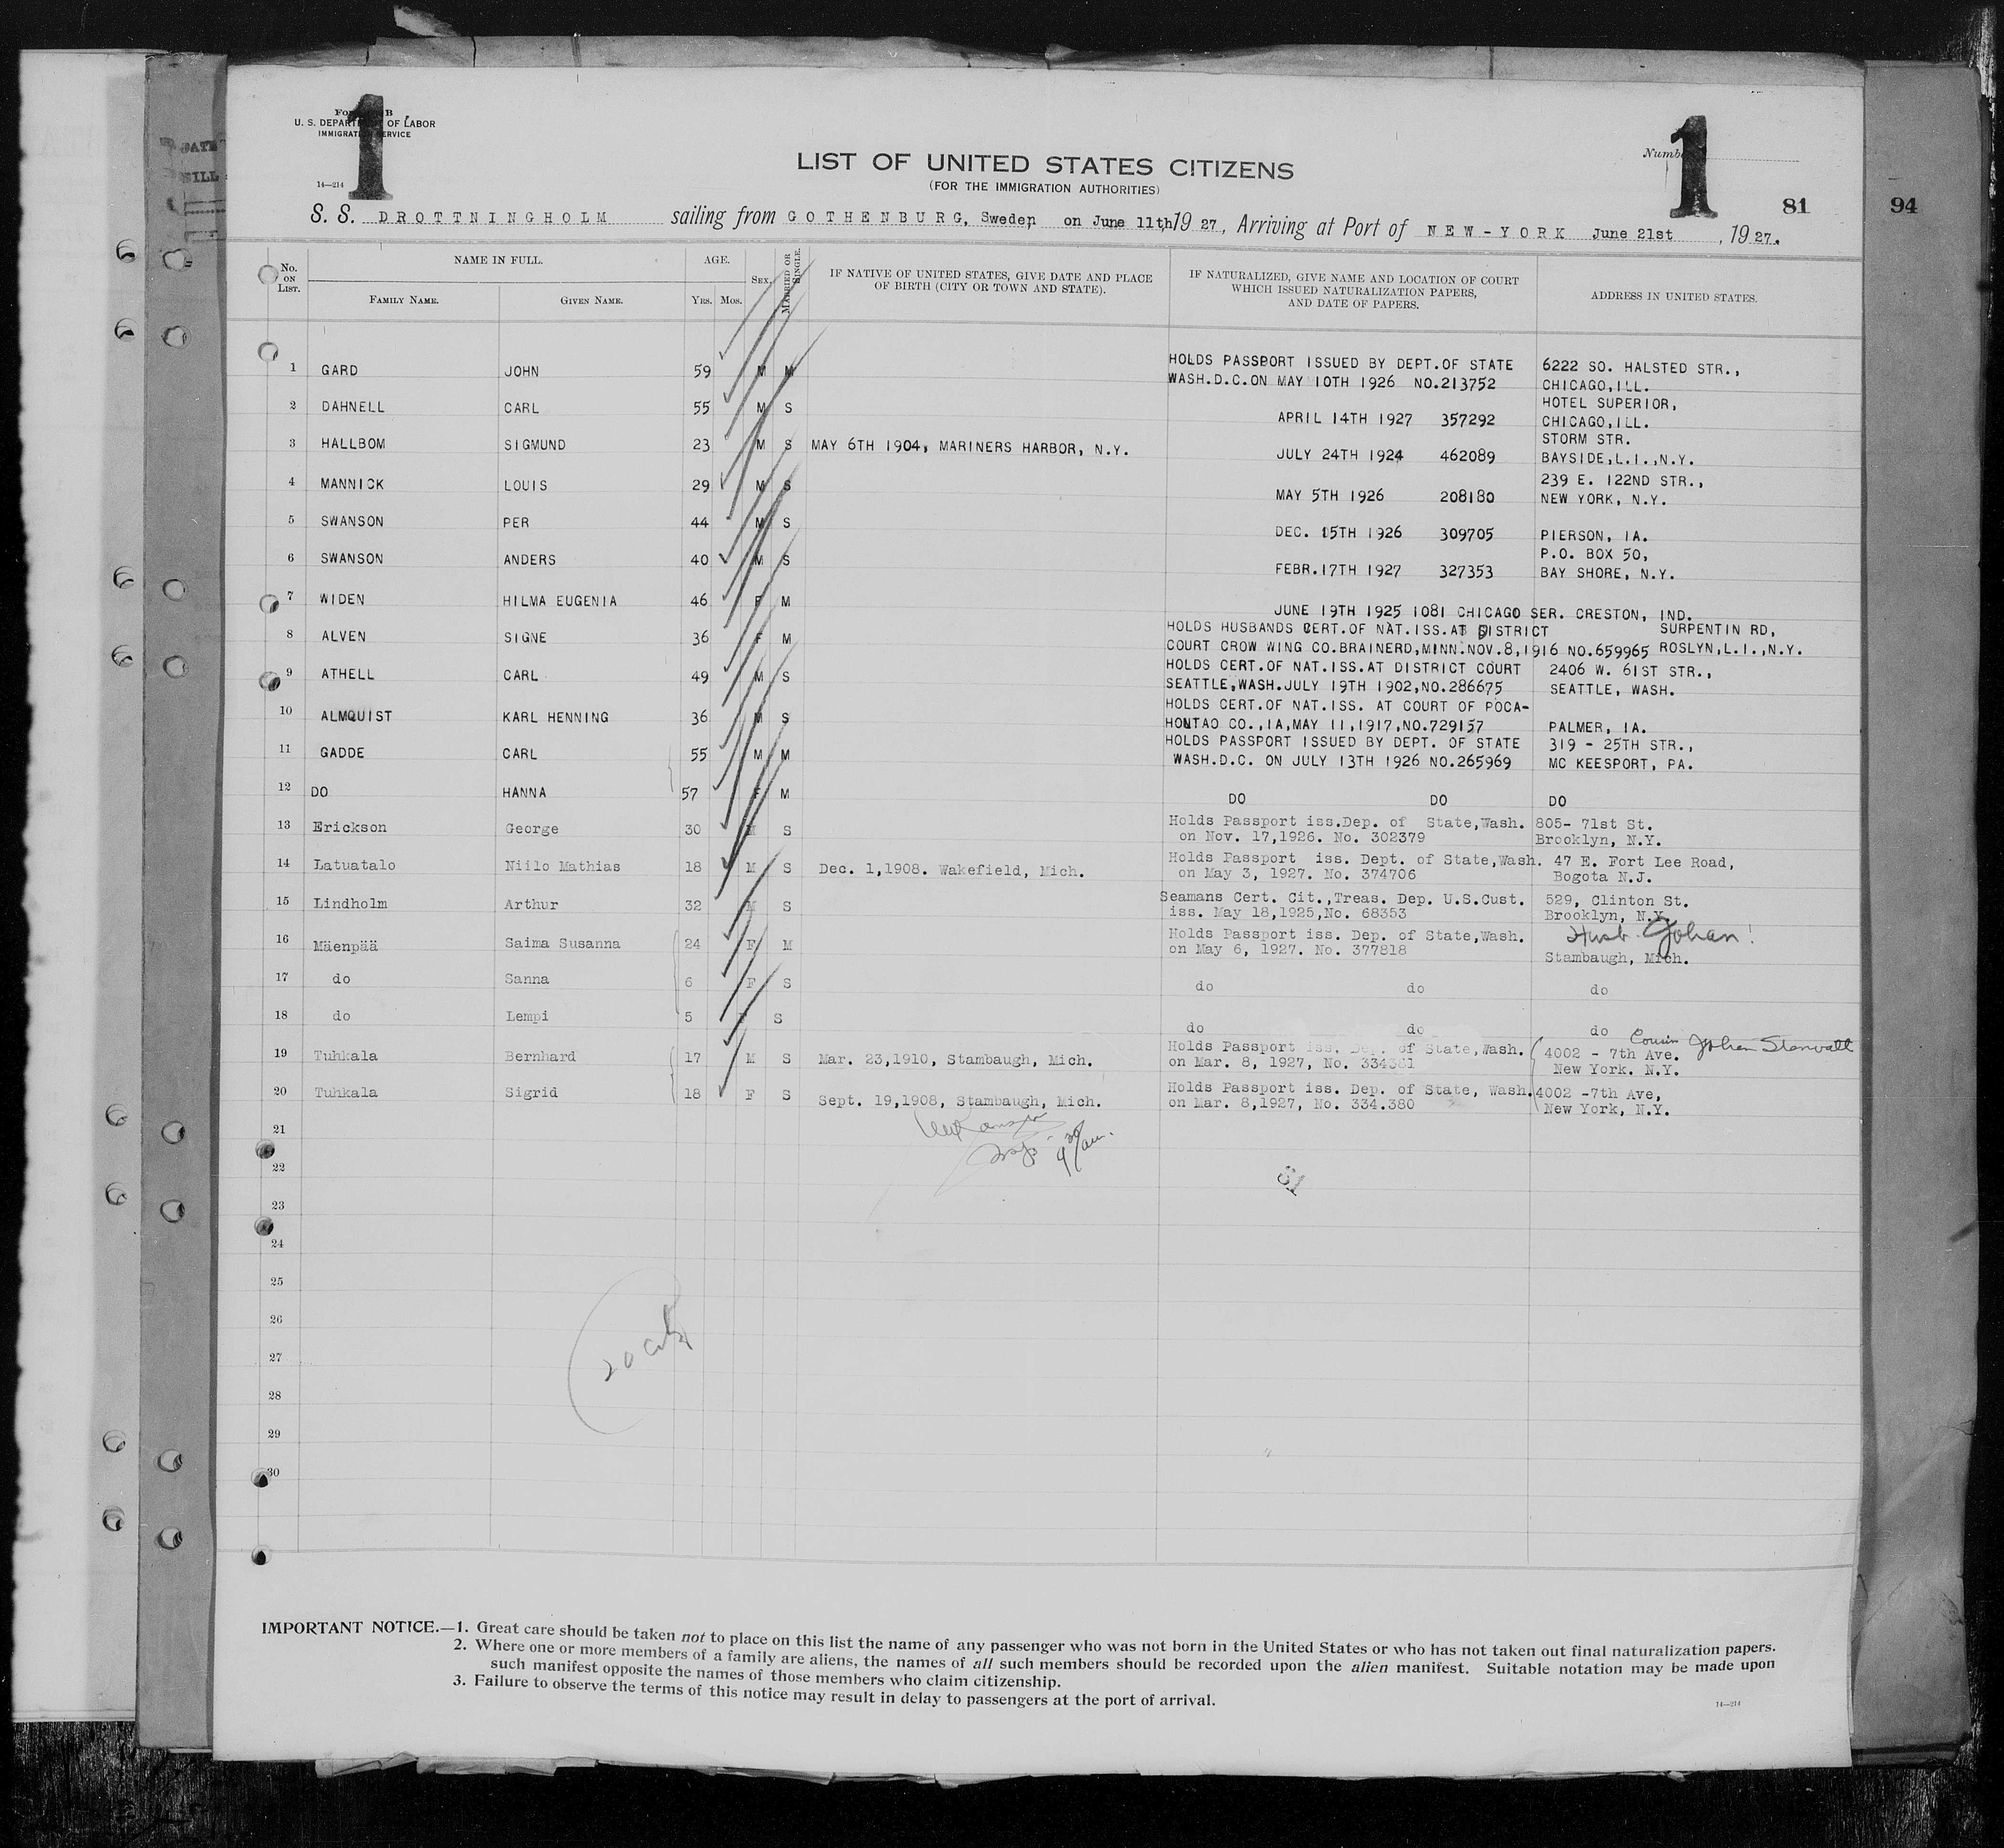 U. S. DEPARTMENT OF LABOR
IMMIGRATION SERVICE
14—214
1
1
LIST OF UNITED STATES CITIZENS
(FOR THE IMMIGRATION AUTHORITIES)
81
94
S. S. DROTTNINGHOLM sailing from GOTHENBURG, Sweden on June 11th, 19 27, Arriving at Port of NEW-YORK June 21st, 19 27.
No. ON LIST.
NAME IN FULL.
FAMILY NAME. GIVEN NAME.
AGE.
YRS. MOS.
SEX.
MARRIED OR SINGLE.
IF NATIVE OF UNITED STATES, GIVE DATE AND PLACE
OF BIRTH (CITY OR TOWN AND STATE).
IF NATURALIZED, GIVE NAME AND LOCATION OF COURT
WHICH ISSUED NATURALIZATION PAPERS,
AND DATE OF PAPERS.
ADDRESS IN UNITED STATES.
1 GARD JOHN 59 M M HOLDS PASSPORT ISSUED BY DEPT.OF STATE 6222 SO. HALSTED STR.,
WASH.D.C.ON MAY 10TH 1926 NO.213752 CHICAGO,ILL.
2 DAHNELL CARL 55 M S HOTEL SUPERIOR,
APRIL 14TH 1927 357292 CHICAGO,ILL.
3 HALLBOM SIGMUND 23 M S MAY 6TH 1904, MARINERS HARBOR, N.Y. STORM STR.
JULY 24TH 1924 462089 BAYSIDE,L.I.,N.Y.
4 MANNICK LOUIS 29 M S 239 E. 122ND STR.,
MAY 5TH 1926 208180 NEW YORK, N.Y.
5 SWANSON PER 44 M S
DEC. 15TH 1926 309705 PIERSON, IA.
6 SWANSON ANDERS 40 M S P.O. BOX 50,
FEBR.17TH 1927 327353 BAY SHORE, N.Y.
7 WIDEN HILMA EUGENIA 46 F M
JUNE 19TH 1925 1081 CHICAGO SER. CRESTON, IND.
8 ALVEN SIGNE 36 F M HOLDS HUSBANDS CERT.OF NAT.ISS.AT DISTRICT SURPENTIN RD,
COURT CROW WING CO.BRAINERD,MINN.NOV.8,1916 NO.659965 ROSLYN,L.I.,N.Y.
9 ATHELL CARL 49 M S HOLDS CERT.OF NAT.ISS.AT DISTRICT COURT 2406 W. 61ST STR.,
SEATTLE,WASH.JULY 19TH 1902,NO.286675 SEATTLE, WASH.
10 ALMQUIST KARL HENNING 36 M S HOLDS CERT.OF NAT.ISS. AT COURT OF POCA-
HONTAO CO.,IA,MAY 11,1917,NO.729157 PALMER, IA.
11 GADDE CARL 55 M M HOLDS PASSPORT ISSUED BY DEPT. OF STATE 319 - 25TH STR.,
WASH.D.C. ON JULY 13TH 1926 NO.265969 MC KEESPORT, PA.
12 DO HANNA 57 F M DO DO DO
13 Erickson George 30 M S Holds Passport iss.Dep. of State,Wash. 805- 71st St.
on Nov. 17,1926. No. 302379 Brooklyn, N.Y.
14 Latuatalo Niilo Mathias 18 M S Dec. 1,1908. Wakefield, Mich. Holds Passport iss. Dept. of State,Wash. 47 E. Fort Lee Road,
on May 3, 1927. No. 374706 Bogota N.J.
15 Lindholm Arthur 32 M S Seamans Cert. Cit.,Treas. Dep. U.S.Cust. 529, Clinton St.
iss. May 18,1925,No. 68353 Brooklyn, N.Y.
16 Mäenpää Saima Susanna 24 F M Holds Passport iss. Dep. of State,Wash. Husb. Johan
on May 6, 1927. No. 377818 Stambaugh, Mich.
17 do Sanna 6 F S do do do
18 do Lempi 5 F S do do do
Cousin Johan Stenvall
19 Tuhkala Bernhard 17 M S Mar. 23,1910, Stambaugh, Mich. Holds Passport iss. Dep. of State,Wash. 4002 - 7th Ave.
on Mar. 8, 1927, No. 334381 New York. N.Y.
20 Tuhkala Sigrid 18 F S Sept. 19,1908, Stambaugh, Mich. Holds Passport iss. Dep. of State, Wash. 4002 -7th Ave,
on Mar. 8,1927, No. 334.380 New York, N.Y.
21
22
23
24
25
26
27
28
29
30
IMPORTANT NOTICE.—1. Great care should be taken not to place on this list the name of any passenger who was not born in the United States or who has not taken out final naturalization papers.
2. Where one or more members of a family are aliens, the names of all such members should be recorded upon the alien manifest. Suitable notation may be made upon
such manifest opposite the names of those members who claim citizenship.
3. Failure to observe the terms of this notice may result in delay to passengers at the port of arrival.
14—214